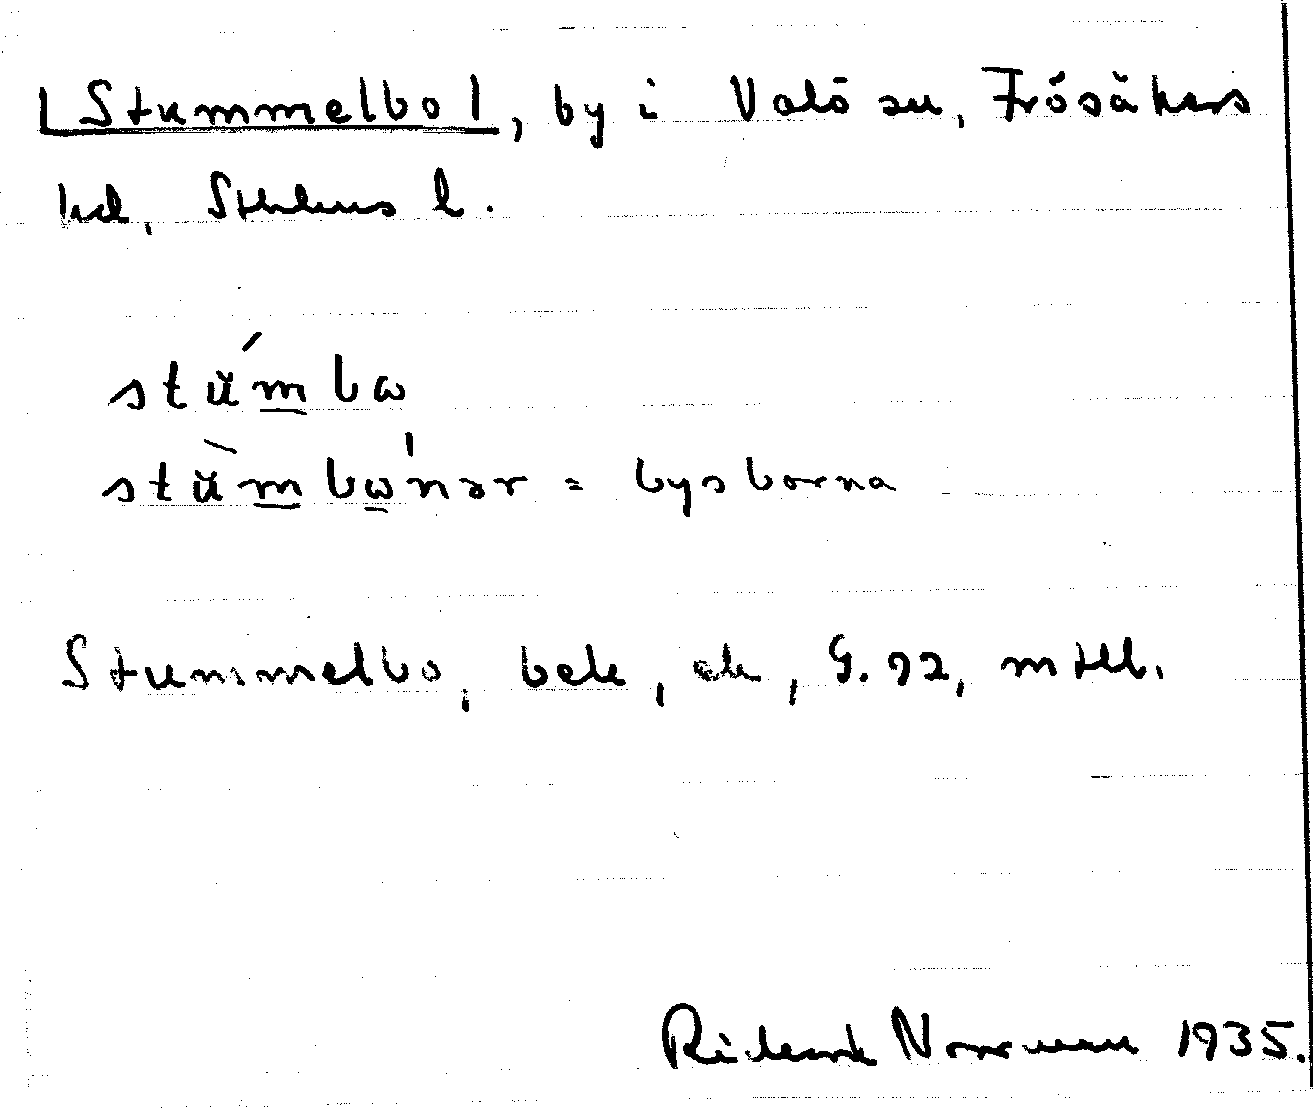 [Stummelbo], by i Valö sn, Frösåkers
hd, Sthlms l.
stŭ́mbω
stŭ̀mbὼnər = bysborna
Stummelbo, bek, ek, G. 92, mtlb.
Rickard Norrman 1935.